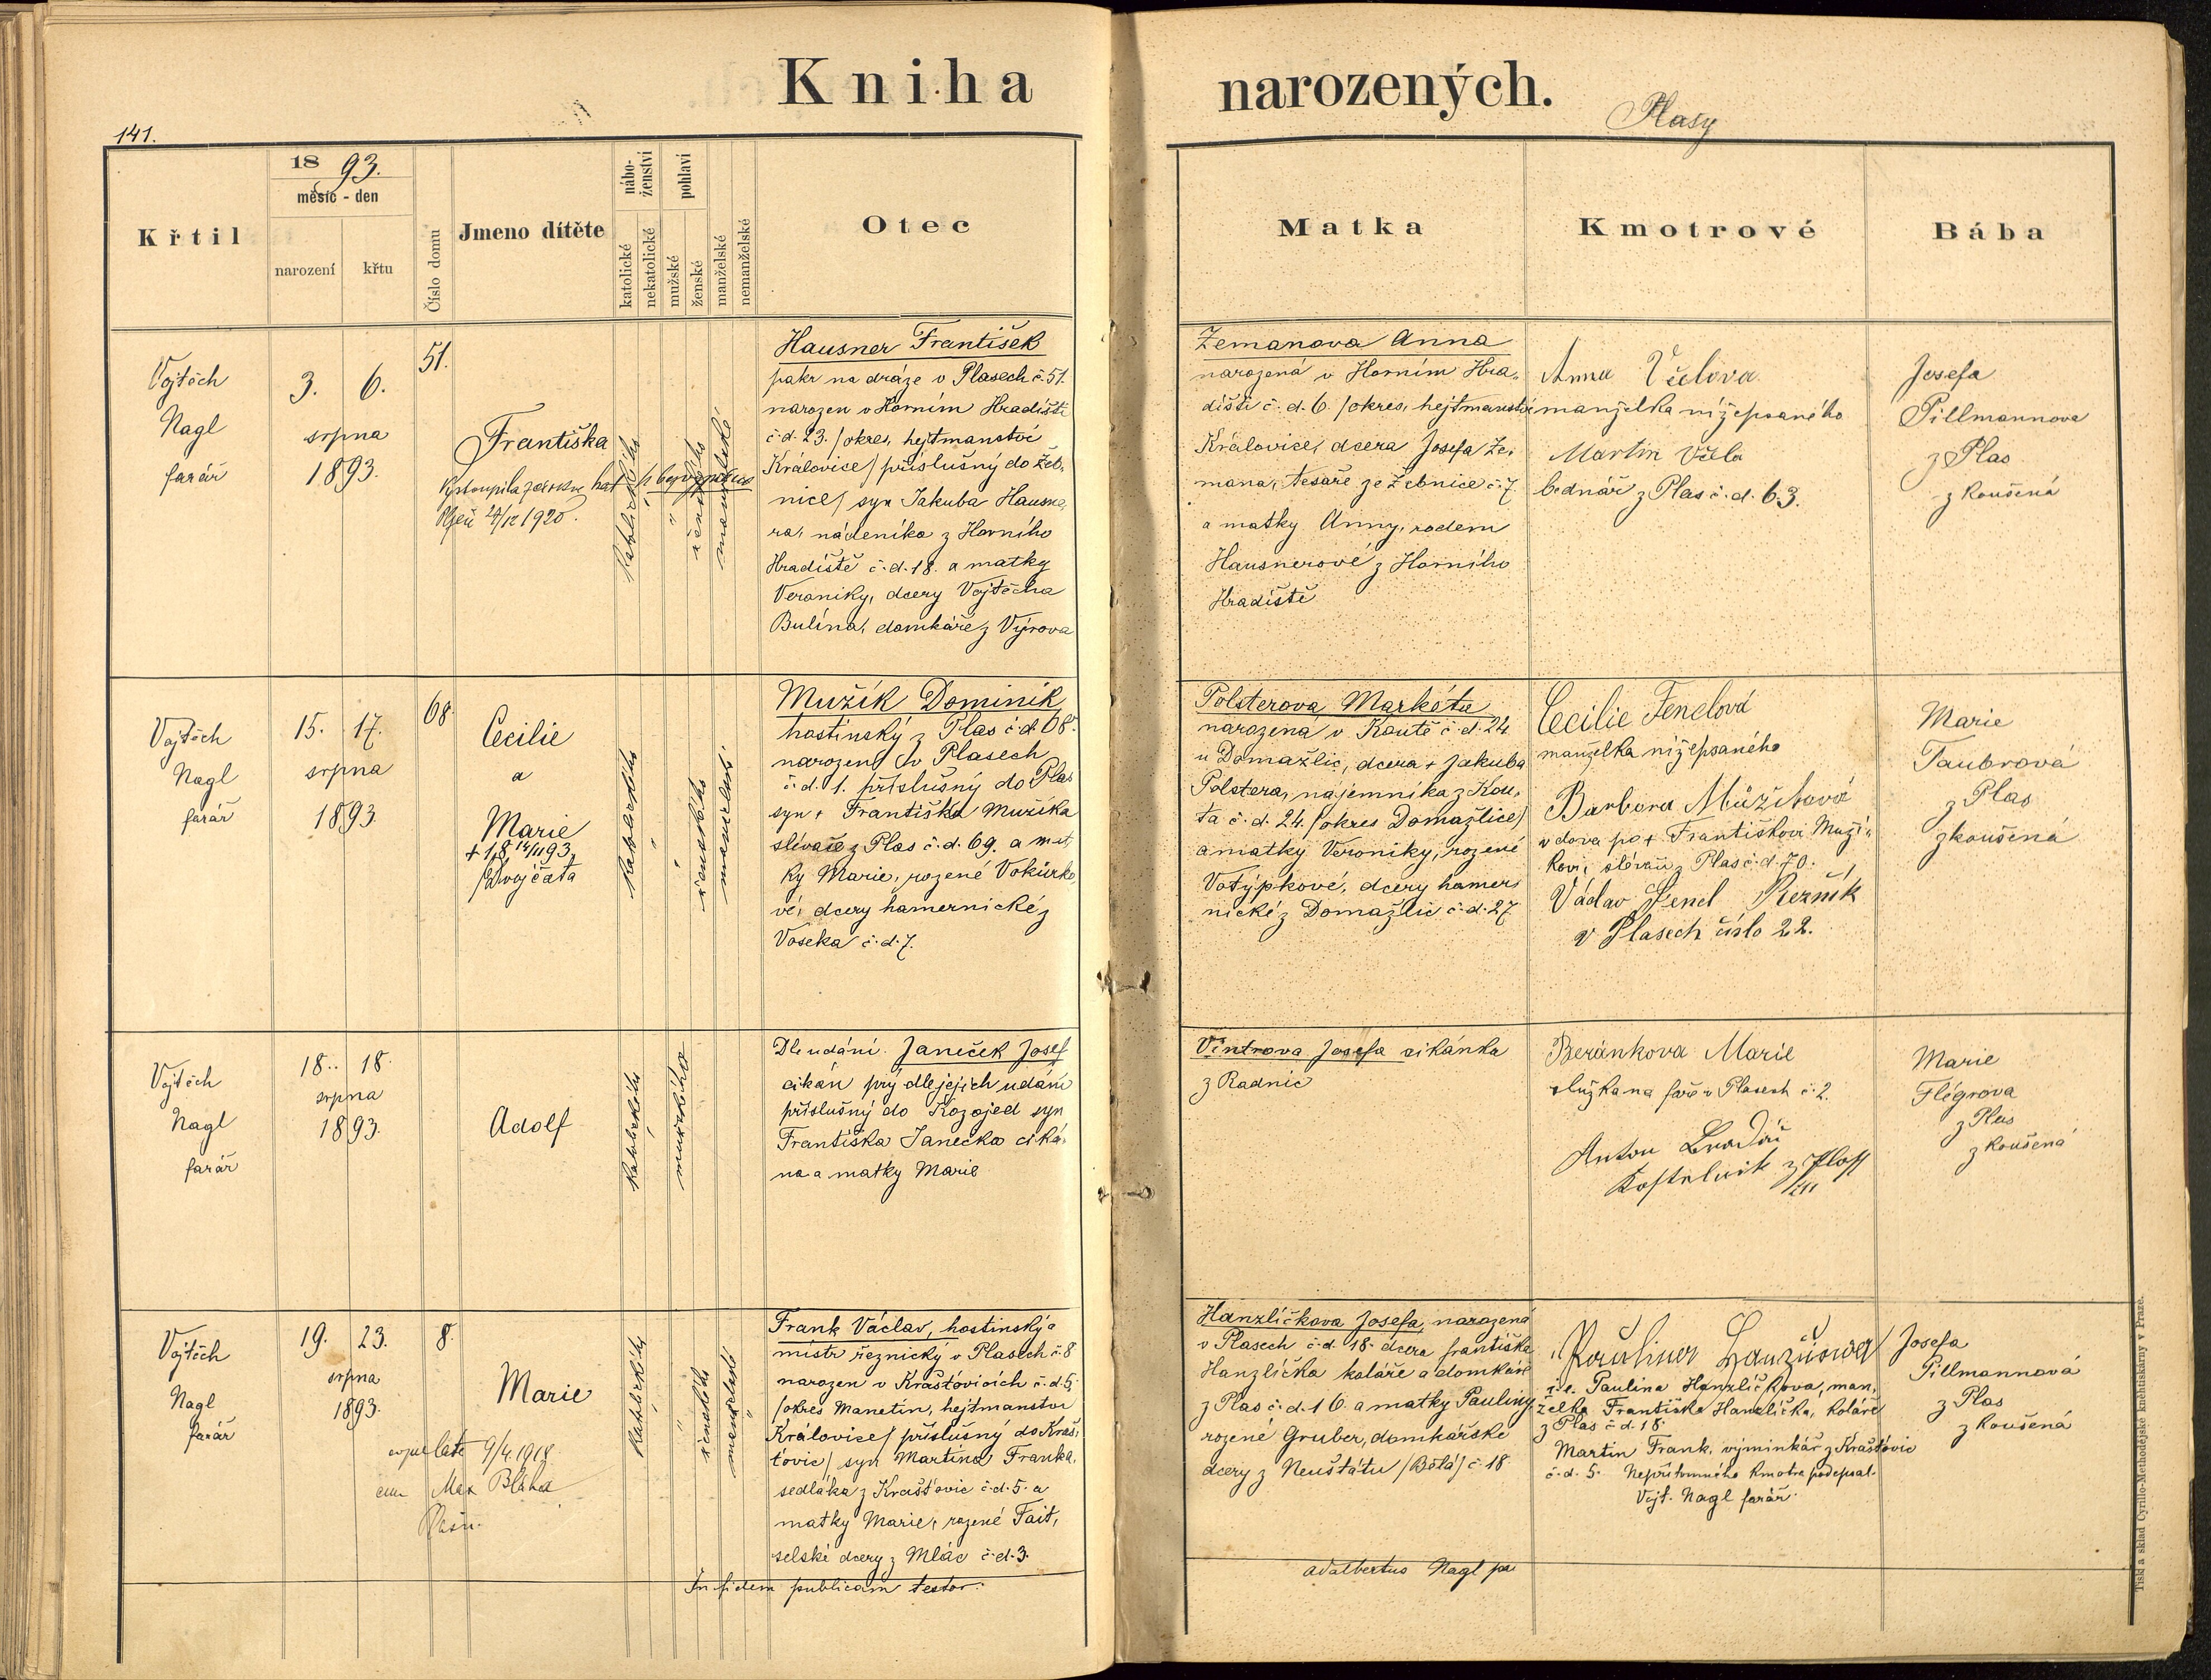 Kniha narozených.
Plasy
141.
Křtil
18 93.
měsíc - den
narození
křtu
Číslo domu
Jmeno dítěte
nábo-
ženství
katolické
nekatolické
pohlaví
mužské
ženské
manželské
nemanželské
Otec
Matka
Kmotrové
Bába
Vojtěch
Nagl
farář
3. 6.
srpna
1893.
51.
Františka
Vystoupila z církve
Plzeň 1920.
katolického
ženského
manželské
Hausner František
pakr na dráze v Plasech č. 51.
narozen v Horním Hradišti
č. d. 23. /okres, hejtmanství
Královice/ příslušný do Žeb-
nice/ syn Jakuba Hausne-
ra, nádeníka z Horního
Hradiště č. d. 18. a matky
Veroniky, dcery Vojtěcha
Bulína, domkáře z Výrova
Zemanova Anna
narozená v Horním Hra-
dišti č. d. 6. /okres, hejtmanství
Královice, dcera Josefa Ze-
mana, tesaře ze Žebnice č. 7.
a matky Anny, rodem
Hausnerové z Horního
Hradiště
Anna Včelova
manželka nížepsaného
Martin Včela
bednář z Plas č. d. 63.
Josefa
Pillmannova
z Plas
zkoušená
Vojtěch
Nagl
farář
15. 17.
srpna
1893.
68.
Cecilie
a
Marie
/Dvojčata
katolického
ženského
manželské
Mužík Dominik
hostinský z Plas č. d. 68.
narozený v Plasech
č. d. 1. příslušný do Plas
syn + Františka Mužíka
slévače z Plas č. d. 69. a mat-
ky Marie, rozené Vokurko-
vé, dcery hamernické z
Voseka č. d. 7.
Polsterova Markéta
narozená v Koutě č. d. 24
u Domažlic, dcera + Jakuba
Polstera, nájemníka z Kou-
ta č. d. 24. /okres Domažlice/
a matky Veroniky, rozené
Votýpkové, dcery hamer-
nické z Domažlic č. d. 27
Cecilie Fenclová
manželka nížepsaného
Barbora Mužíková
vdova po + Františkovi Muží-
kovi, slévači z Plas č. d. 70.
Václav Fencl Řezník
v Plasech číslo 22.
Marie
Taubrová
z Plas
zkoušená
Vojtěch
Nagl
farář
18. 18.
srpna
1893.
Adolf
katolického
mužského
Dle udání Janeček Josef
cikán prý dle jejich udání
příslušný do Kozojed syn
Františka Janečka ciká-
na a matky Marie
Vintrova Josefa cikánka
z Radnic
Beránkova Marie
služka na faře v Plasech č. 2.
Anton
Kostelnik z Plass
Marie
Flégrova
z Plas
zkoušená
Vojtěch
Nagl
farář
19. 23.
srpna
1893.
8.
Marie
9/4. 1918
Max Bláha
katolického
ženského
manželské
Frank Václav, hostinský a
mistr řeznický v Plasech č. 8
narozen v Krašťovicích č. d. 5,
/okres Manetín, hejtmanství
Královice/ příslušný do Kraš-
ťovic/ syn Martina Franka,
sedláka z Krašťovic č. d. 5. a
matky Marie, rozené Fait,
selské dcery z Mlác č. d. 3.
Hanzlíčkova Josefa, narozená
v Plasech č. d. 18. dcera Františka
Hanzlíčka koláře a domkáře
z Plas č. d. 16. a matky Pauliny
rozené Gruber, domkářské
dcery z Neuštátu /Bělá/ č. 18.
t. e. Paulina Hanzlíčkova, man-
želka Františka Hanzlíčka, koláře
z Plas č. d. 18.
Martin Frank, výminkář z Krašťovic
č. d. 5. Nepřítomného kmotra podepsal
Vojt. Nagl farář.
Josefa
Pillmannová
z Plas
zkoušená
In fidem publicam testor:
Adalbertus Nagl
Tisk a sklad Cyrillo-Methodějské knihtiskárny v Praze.